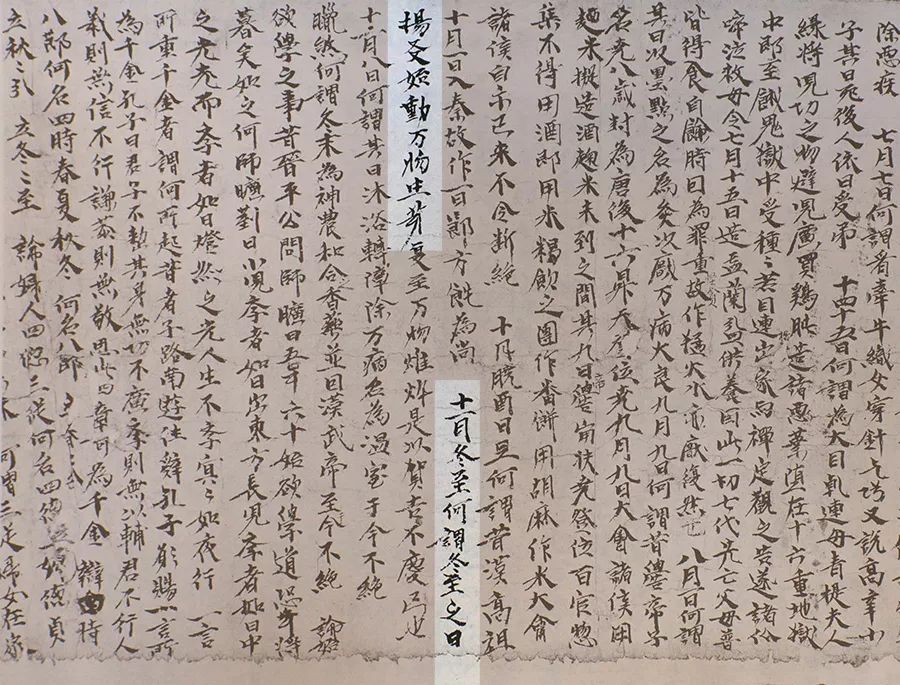 除恶疾 七月七日何謂看牽牛織女穿針乞巧又說高辛小
子其日死後人依日受吊 十四十五日何謂為大目乹連母青提夫人
緣將兒功之物避兒廣買鷄肫造諸惡業滇在十方重地獄
中郎至餓鬼獄中受種々苦目連出家而禪定觀之告諸佛
啼泣救母令七月十五日造盂蘭盆供養因此一切七代先亡父母普
皆得食自餘時日為罪重故作猛火水亦厭後然也 八月一日何謂
其日以墨點之名為灸以厭万病大良九月九日何謂昔禮帝子
名堯八歲封為唐後十六昇天子位堯九月九日大會諸侯用
麹米擬造酒麹米未到之間其九日禮崩扶堯登位百官惣
集不得用酒即用米糊飲之團作番餅用胡麻作米大會
諸侯自尒已来不令断絶 十月日旦何謂昔漢高祖
十月一日入秦故作一日節方就為尚 十一月冬至何謂冬至之日
揚爻始動万物生芽復至万物雖是以賀喜不慶弔也
十二月八日何謂其日沐浴轉障除万病名為温室于今不絶
臘然何謂久来為神農和合香藥並因漢武帝至今不絶 論始
欲學之事昔晉平公問師曠曰吾年六十始欲學道恐將
暮矣如之何師曠對曰小兒孝者如日出東方長兒孝者如日中
之光老而孝者如日燈然之光人生不孝冥々如夜行 一言
所重千金者謂何所起昔者子路南遊往辞孔子賜一言所
為千金孔子曰君子不勤其身無功不廣孝則無以輔君不行人
義則無信不行謙恭則無敬思此四章可為千金 辯四時
八節何名四時春夏秋冬何名八節
立秋々分 立冬冬至 論婦人四德三從何名四德貞
何謂三從婦女在家